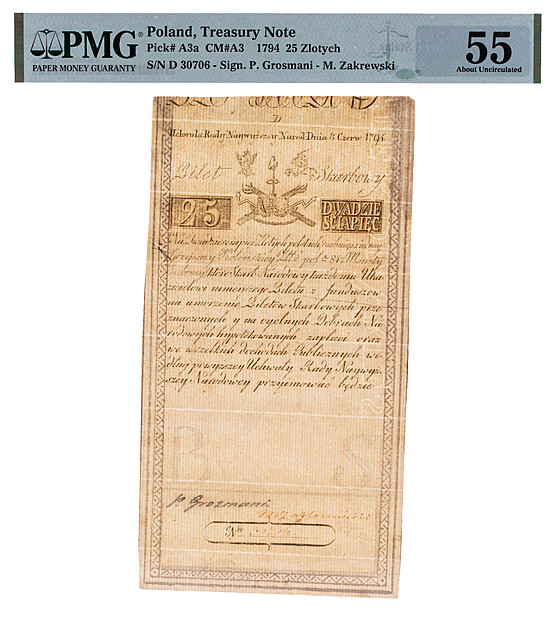 PMG
PAPER MONEY GUARANTY
Poland, Treasury Note
Pick# A3a CM#A3 1794 25 Zlotych
S/N D 30706 - Sign. P. Grosmani - M. Zakrewski
55
About Uncirculated
D
Uchwała Rady Naywyższey Narod: Dnia 8 Czerw. 1794
Bilet Skarbowy
25
DWADZIE
ŚCIAPIĘĆ
Złotych polskich
Skarb Narodowy każdemu Oka
zicielowi ninieyszego Biletu z funduszow
na umorzenie Biletow Skarbowych prze
znaczonych y na ogolnych Dobrach Na
rodowych hypotekowanych zapłaci oraz
we wszelkich dochodach Publicznych we
dług powyższey Uchwały Rady Naywyż
szey Narodowey przyimować będzie
P. Grozmani
No